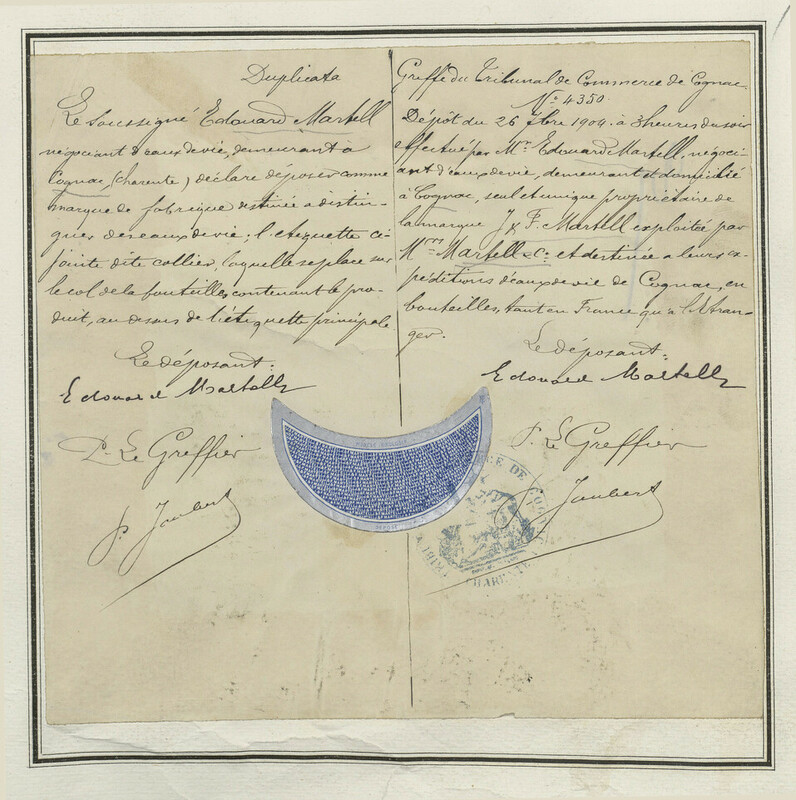 Duplicata
Le Soussigné Edouard Martell
négociant d'eaux de vie, demeurant à
Cognac, (Charente) déclare déposer comme
marque de fabrique destinée à distin-
guer des eaux de vie; l'etiquette ci-
jointe dite collier, laquelle se place sur
le col de la bouteille, contenant le pro-
duit, au dessus de l'étiquette principale
Le déposant:
Edouard Martell
P. Le Greffier
P. Jaubert
Greffe du Tribunal de Commerce de Cognac.
No. 4350.
Dépôt du 26 7bre 1904. à 3 heures du soir
effectué par Mr. Edouard Martell, négoci-
ant d'eaux de vie, demeurant et domicilié
à Cognac, seul et unique propriétaire de
la marque J & F. Martell exploitée par
M.rs Martell & Co. et destinée à leurs ex-
péditions d'eaux de vie de Cognac, en
bouteilles, tant en France qu'à l'étran-
ger.
Le déposant:
Edouard Martell
P. Le Greffier
Jaubert
DÉPOSÉ
CE DE COGN
TRIB
CHARENTE